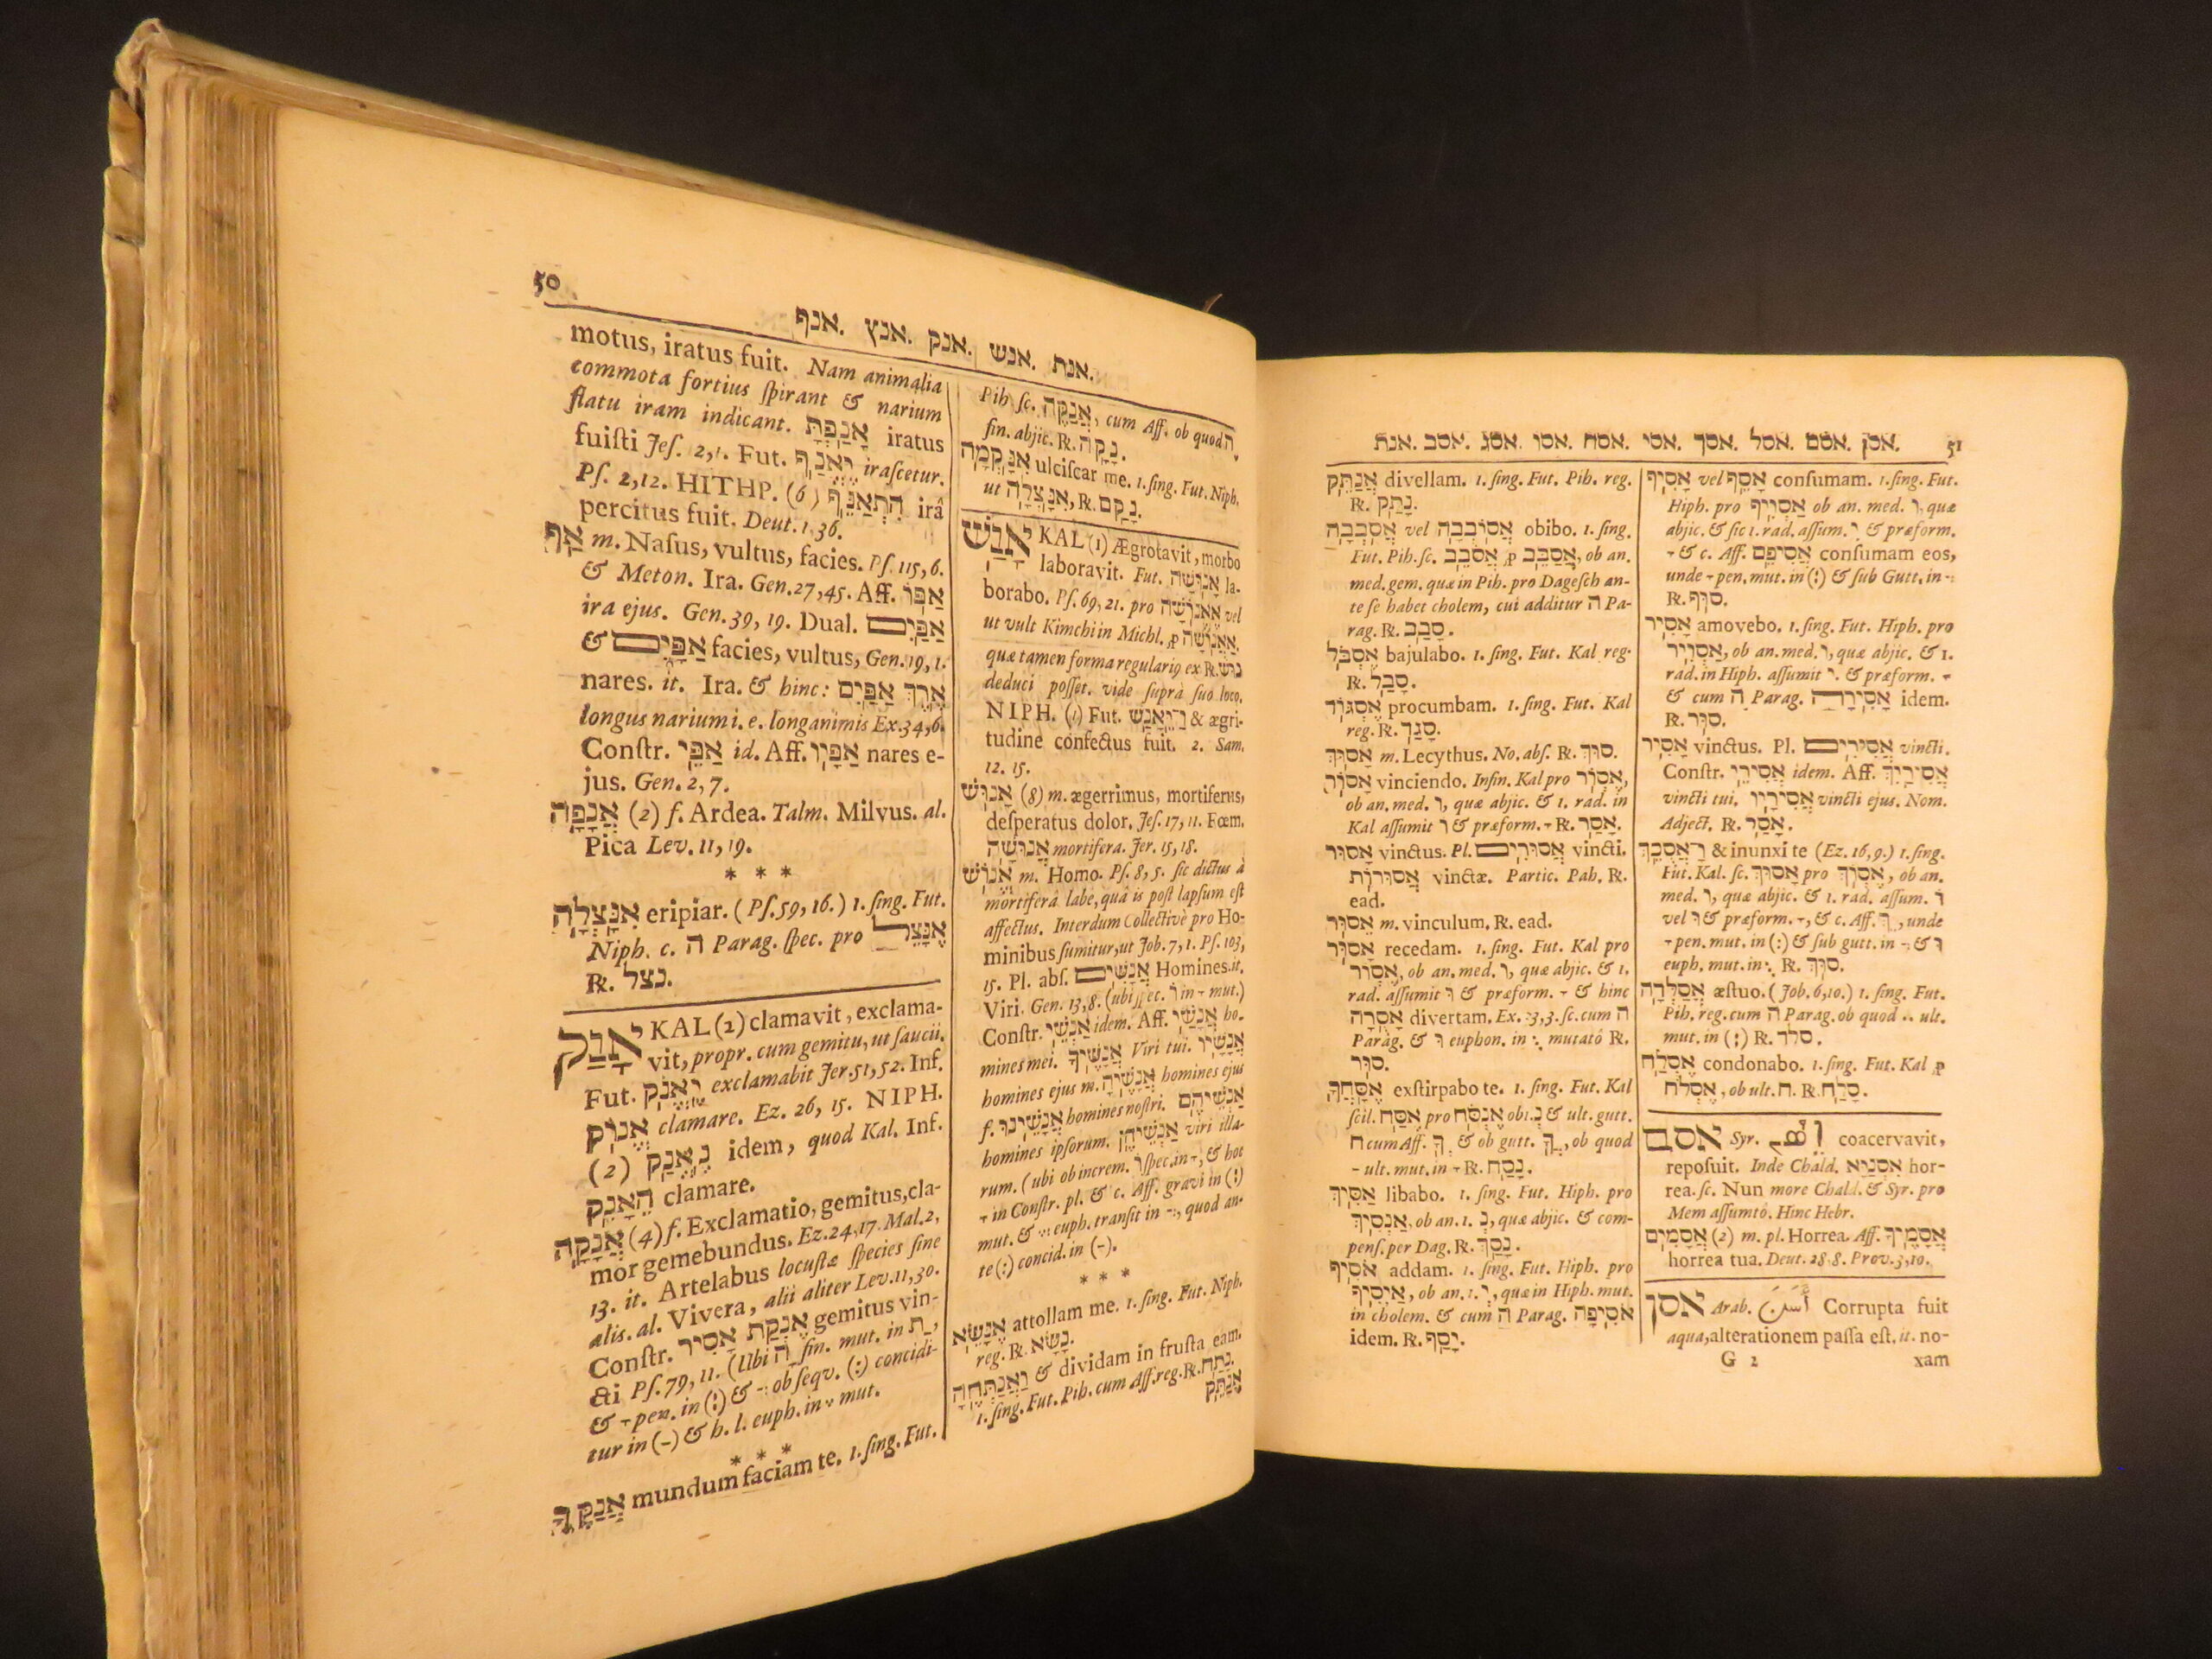 50
אנף. אנץ. אנק. אנש. אנת.
motus, iratus fuit. Nam animalia
commota fortius ſpirant & narium
flatu iram indicant. אָנַפְתָּ iratus
fuiſti Jeſ. 2,1. Fut. יֶאֱנַף iraſcetur.
Pſ. 2,12. HITHP. (6) הִתְאַנֵּף irâ
percitus fuit. Deut. 1, 36.
אַף m. Naſus, vultus, facies. Pſ. 115, 6.
& Meton. Ira. Gen. 27, 45. Aff. אַפּוֹ
ira ejus. Gen. 39, 19. Dual. אַפַּיִם
& אַפָּיִם facies, vultus, Gen. 19, 1.
nares. it. Ira. & hinc: אֶרֶךְ אַפַּיִם
longus narium i. e. longanimis Ex. 34, 6.
Conſtr. אַפֵּי id. Aff. אַפָּיו nares e-
jus. Gen. 2, 7.
אֲנָפָה (2) f. Ardea. Talm. Milvus. al.
Pica Lev. 11, 19.
* * *
אִנָּצְלָה eripiar. (Pſ. 59, 16.) 1. ſing. Fut.
Niph. c. ה Parag. ſpec. pro אֶנָּצֵל
R. נצל.
אָנַק KAL (2) clamavit, exclama-
vit, propr. cum gemitu, ut ſaucii.
Fut. יֶאֱנֹק exclamabit Jer. 51, 52. Inf.
אֱנֹק clamare. Ez. 26, 15. NIPH.
(2) נֶאֱנַק idem, quod Kal. Inf.
הֵאָנֵק clamare.
אֲנָקָה (4) f. Exclamatio, gemitus, cla-
mor gemebundus. Ez. 24, 17. Mal. 2,
13. it. Artelabus locuſtæ ſpecies ſine
alis. al. Vivera, alii aliter Lev. 11, 30.
Conſtr. אֶנְקַת אָסִיר gemitus vin-
cti Pſ. 79, 11. (Ubi ה fin. mut. in ת,
& pen. in (:) & ob ſeqv. (:) concidi-
tur in (-) & h. l. euph. in mut.
* * *
אֲנַקֶּךָּ mundum faciam te. 1. ſing. Fut.
Pih ſc. אֲנַקֶּה, cum Aff. ob quod ה
fin. abjic. R. נָקָה.
אִנָּקְמָה ulciſcar me. 1. ſing. Fut. Niph.
ut אִנָּצְלָה, R. נָקַם.
אָנַשׁ KAL (1) Ægrotavit, morbo
laboravit. Fut. אָנוּשָׁה la-
borabo. Pſ. 69, 21. pro אֶאֱנוּשָׁה vel
ut vult Kimchi in Michl.
quæ tamen forma regulariq ex R. נוּשׁ
deduci poſſet. vide ſuprà ſuo loco.
NIPH. (1) Fut. וַיֵּאָנַשׁ & ægri-
tudine confectus fuit. 2. Sam.
12. 15.
אָנוּשׁ (8) m. ægerrimus, mortiferus,
deſperatus dolor. Jeſ. 17, 11. Fœm.
אֲנוּשָׁה mortifera. Jer. 15, 18.
אֱנוֹשׁ m. Homo. Pſ. 8, 5. ſic dictus à
mortiferâ labe, quâ is poſt lapſum eſt
affectus. Interdum Collectivè pro Ho-
minibus ſumitur, ut Job. 7, 1. Pſ. 103,
15. Pl. abſ. אֲנָשִׁים Homines. it.
Viri. Gen. 13, 8. (ubi ſpec. וֹ in mut.)
Conſtr. אַנְשֵׁי idem. Aff. אֲנָשַׁי ho-
mines mei. אֲנָשֶׁיךָ Viri tui. אֲנָשָׁיו
homines ejus m. אֲנָשֶׁיהָ homines ejus
f. אֲנָשֵׁינוּ homines noſtri. אַנְשֵׁיהֶם
homines ipſorum. אַנְשֵׁיהֶן viri illa-
rum. (ubi ob increm. ſpec. in, & hoc
in Conſtr. pl. & c. Aff. gravi in (:)
mut. & euph. tranſit in, quod an-
te (:) concid. in (-).
* * *
אֶנָּשֵׂא attollam me. 1. ſing. Fut. Niph.
reg. R. נָשָׂא.
וַאֲנַתְּחֶהָ & dividam in fruſta eam.
1. ſing. Fut. Pih. cum Aff. reg. R. נָתַח.
אֲנַתֵּק
אנת. אסב. אסג. אסו. אסח. אסי. אסך. אסל. אסם. אסן. 51
אֲנַתֵּק divellam. 1. ſing. Fut. Pih. reg.
R. נָתַק.
אֲסֹבְבָה vel אֲסוֹבְבָה obibo. 1. ſing.
Fut. Pih. ſc. אֲסֹבֵב p אֲסַבֵּב, ob an.
med. gem. quæ in Pih. pro Dageſch an-
te ſe habet cholem, cui additur ה Pa-
rag. R. סָבַב.
אֶסְבֹּל bajulabo. 1. ſing. Fut. Kal reg.
R. סָבַל.
אֶסְגּוֹד procumbam. 1. ſing. Fut. Kal
reg. R. סָגַד.
אָסוּךְ m. Lecythus. No. abſ. R. סוּךְ.
אָסוֹר vinciendo. Infin. Kal pro אֲסוֹר,
ob an. med. ו, quæ abjic. & 1. rad. in
Kal aſſumit ו & præform. R. אָסַר.
אָסוּר vinctus. Pl. אֲסוּרִים vincti.
אֲסוּרוֹת vinctæ. Partic. Pah. R.
ead.
אֵסוּר m. vinculum, R. ead.
אָסוּר recedam. 1. ſing. Fut. Kal pro
אֶסְוֹר, ob an. med. ו, quæ abjic. & 1.
rad. aſſumit ו & præform. & hinc
אָסֻרָה divertam. Ex. 3, 3. ſc. cum ה
Parag. & ו euphon. in mutatô R.
סוּר.
אֶסָּחֲךָ exſtirpabo te. 1. ſing. Fut. Kal
ſcil. אֶסַּח pro אֶנְסֹח ob 1. נ & ult. gutt.
ח cum Aff. ךָ & ob gutt. ךָ, ob quod
ult. mut. in R. נָסַח.
אַסִּיךְ libabo. 1. ſing. Fut. Hiph. pro
אַנְסִיךְ, ob an. 1. נ, quæ abjic. & com-
penſ. per Dag. R. נָסַךְ.
אֹסִיף addam. 1. ſing. Fut. Hiph. pro
אַיְסִיף, ob an. 1. י, quæ in Hiph. mut.
in cholem. & cum ה Parag. אֹסִיפָה
idem. R. יָסַף.
אָסִיף vel אָסֵף conſumam. 1. ſing. Fut.
Hiph. pro אַסְוִיף ob an. med. ו, quæ
abjic. & ſic 1. rad. aſſum. י & præform.
& c. Aff. אֲסִיפֵם conſumam eos,
unde pen. mut. in (:) & ſub Gutt. in
R. סוּף.
אָסִיר amovebo. 1. ſing. Fut. Hiph. pro
אַסְוִיר, ob an. med. ו, quæ abjic. & 1.
rad. in Hiph. aſſumit י. & præform.
& cum ה Parag. אָסִירָה idem.
R. סוּר.
אָסִיר vinctus. Pl. אֲסִירִים vincti.
Conſtr. אֲסִירֵי idem. Aff. אֲסִירַיִךְ
vincti tui. אֲסִירָיו vincti ejus. Nom.
Adject. R. אָסַר.
וָאֲסֻכֵךְ & inunxi te (Ez. 16, 9.) 1. ſing.
Fut. Kal. ſc. אָסוּךְ pro אֶסְוֹךְ, ob an.
med. ו, quæ abjic. & 1. rad. aſſum. ו
vel ו & præform., & c. Aff. ךְ, unde
pen. mut. in (:) & ſub gutt. in & ו
euph. mut. in R. סוּךְ.
אֲסַלְּדָה æſtuo. (Job. 6, 10.) 1. ſing. Fut.
Pih. reg. cum ה Parag. ob quod ult.
mut. in (:) R. סלד.
אֶסְלַח condonabo. 1. ſing. Fut. Kal p
אֶסְלֹח, ob ult. ח. R. סָלַח.
אסם Syr. coacervavit,
repoſuit. Inde Chald. אסניא hor-
rea. ſc. Nun more Chald. & Syr. pro
Mem aſſumtô. Hinc Hebr.
אֲסָמִים (2) m. pl. Horrea. Aff. אֲסָמֶיךָ
horrea tua. Deut. 28, 8. Prov. 3, 10.
אסן Arab. أَسَنَ Corrupta fuit
aqua, alterationem paſſa eſt. it. no-
G 2 xam